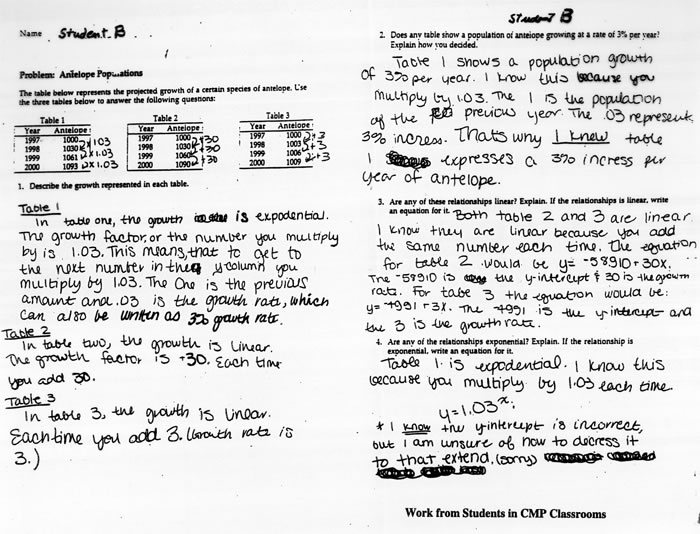 Name Student B
Problem: Antelope Populations
The table below represents the projected growth of a certain species of antelope. Use
the three tables below to answer the following questions:
Table 1
Year Antelope
1997 1000
1998 1030
1999 1061
2000 1093
x 1.03
x 1.03
x 1.03
Table 2
Year Antelope
1997 1000
1998 1030
1999 1060
2000 1090
+30
+30
+30
Table 3
Year Antelope
1997 1000
1998 1003
1999 1006
2000 1009
+3
+3
+3
1. Describe the growth represented in each table.
Table 1
In table one, the growth is expodential.
The growth factor, or the number you multiply
by is 1.03. This means, that to get to
the next number in the y column you
multiply by 1.03. The One is the previous
amount and .03 is the growth rate, which
can also be written as 3% growth rate.
Table 2
In table two, the growth is linear.
The growth factor is +30. Each time
you add 30.
Table 3
In table 3, the growth is linear.
Each time you add 3. (Growth rate is
3.)
Student B
2. Does any table show a population of antelope growing at a rate of 3% per year?
Explain how you decided.
Table 1 shows a population growth
of 3% per year. I know this because you
multiply by 1.03. The 1 is the population
of the previous year. The .03 represents
3% incress. Thats why I knew table
1 expresses a 3% incress per
year of antelope.
3. Are any of these relationships linear? Explain. If the relationships is linear, write
an equation for it. Both table 2 and 3 are linear.
I know they are linear because you add
the same number each time. The equation
for table 2 would be y= -58910 + 30x.
The -58910 is the y-intercept & 30 is the growth
rate. For table 3 the equation would be:
y= -4991 + 3x. The -4991 is the y-intercept and
the 3 is the growth rate.
4. Are any of the relationships exponential? Explain. If the relationship is
exponential, write an equation for it.
Table 1 is expodential. I know this
because you multiply by 1.03 each time.
y = 1.03ˣ
* I know the y-intercept is incorrect,
but I am unsure of how to decress it
to that extend. (sorry)
Work from Students in CMP Classrooms